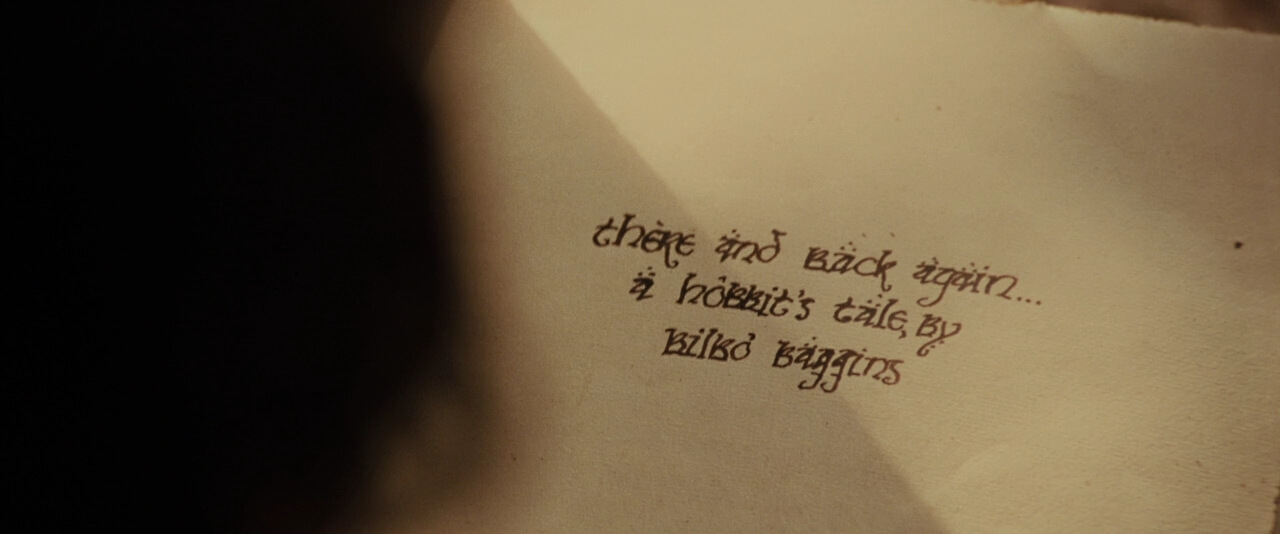 there and back again...
a hobbit's tale, by
bilbo baggins